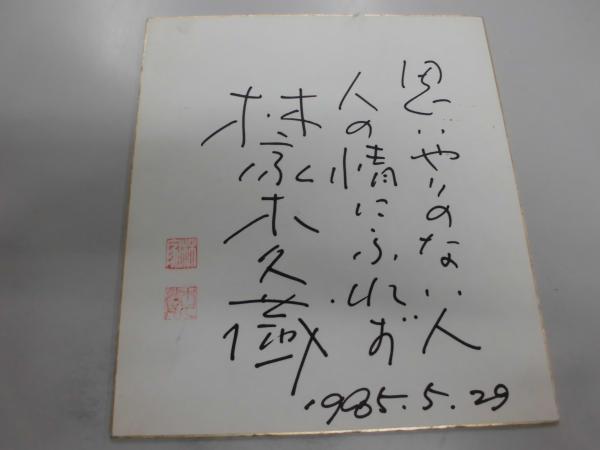 思いやりのない人
人の情にふれず
林家木久蔵
1985.5.29